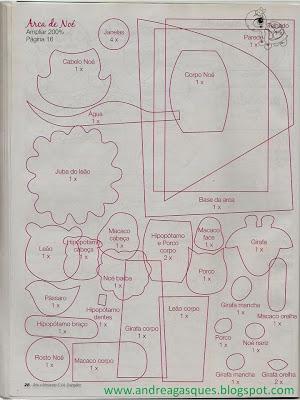 Arca de Noé
Ampliar 200%
Página 16
Janelas
4 x
Telhado
1 x
Parede
1 x
Cabelo Noé
1 x
Corpo Noé
1 x
Água
1 x
Juba do leão
1 x
Base da arca
1 x
Leão
1 x
Hipopótamo
cabeça
1 x
Macaco
cabeça
1 x
Hipopótamo
e Porco
corpo
2 x
Macaco
face
1 x
Girafa
1 x
Porco
1 x
Noé barba
1 x
Pássaro
1 x
Hipopótamo
dentes
1 x
Girafa mancha
1 x
Macaco orelha
1 x
Hipopótamo braço
1 x
Girafa corpo
1 x
Leão corpo
1 x
Porco
1 x
Noé nariz
1 x
Rosto Noé
1 x
Macaco corpo
1 x
Girafa mancha
1 x
Girafa orelha
2 x
28
www.andreagasques.blogspot.com